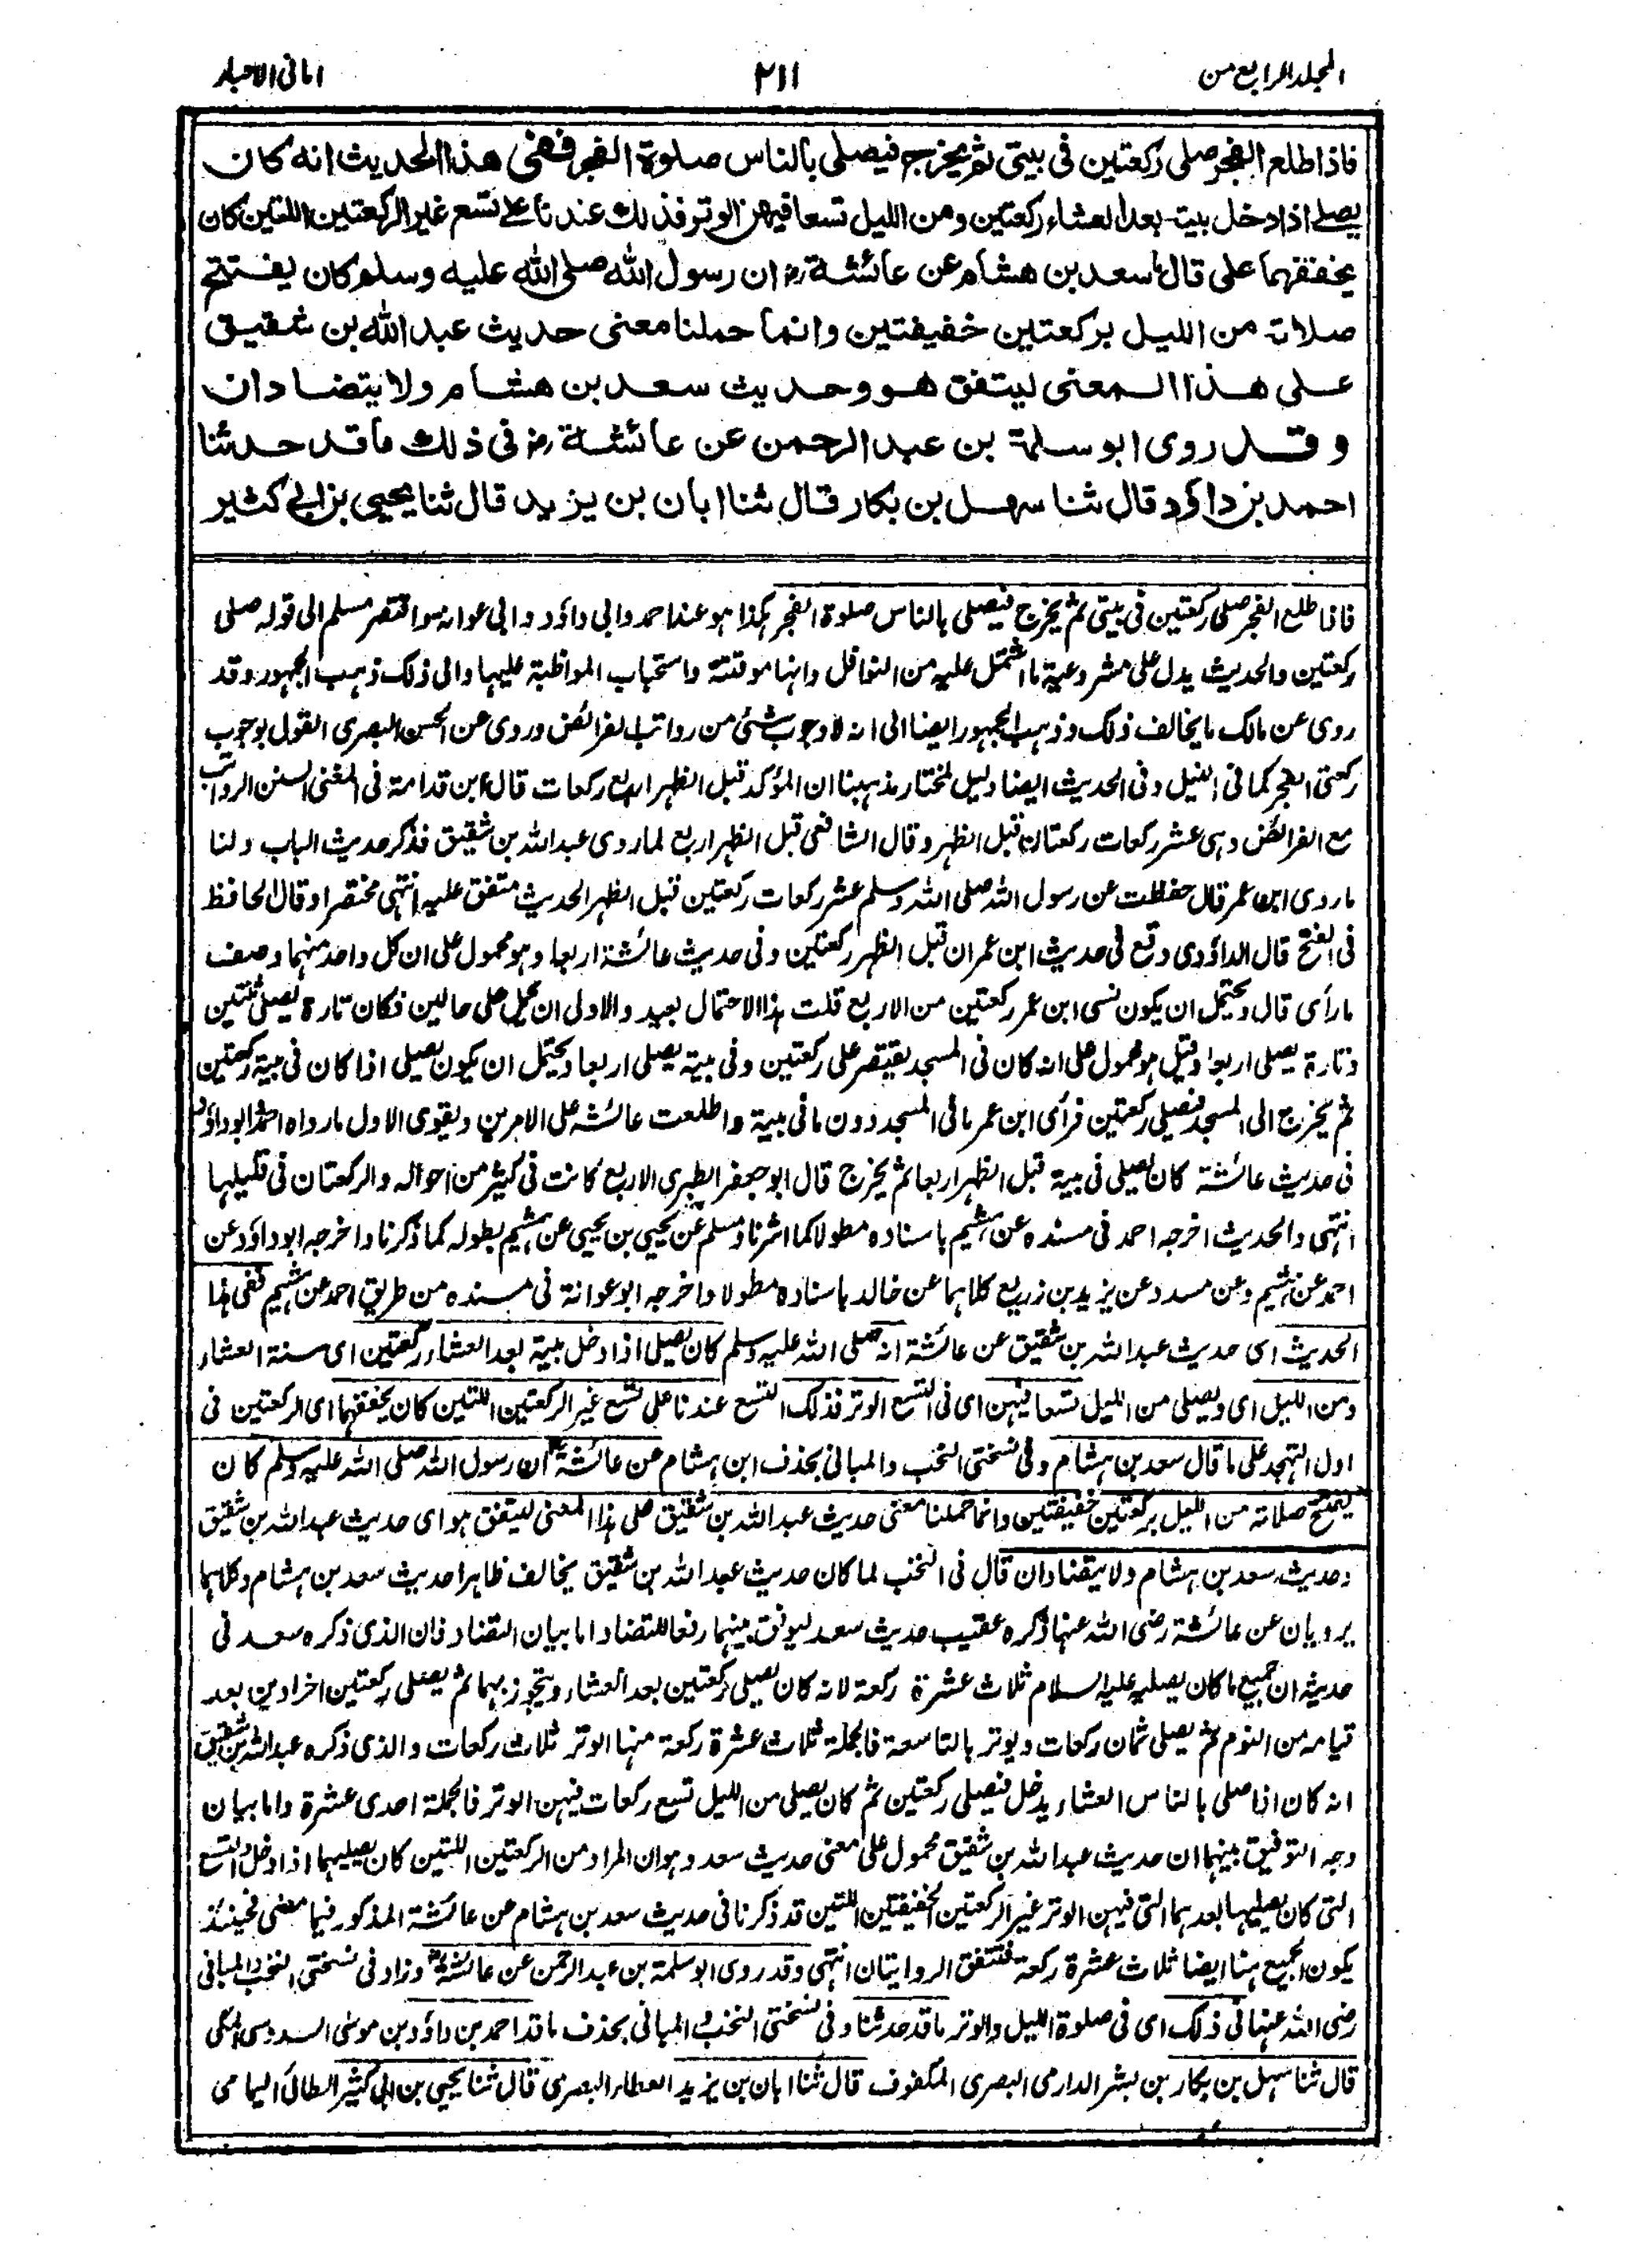 المجلد الرابع من
٢١١
امانى الاحبار
فاذا طلع الفجر صلى ركعتين فى بيتى ثم يخرج فيصلى بالناس صلوة الفجر ففى هذا الحديث انه كان
يصلے اذا دخل بيته بعد العشاء ركعتين ومن الليل تسعا فيهن الوتر فذلك عندنا علے تسع غير الركعتين اللتين كان
يخففهما على ما قال سعد بن هشام عن عائشة رض ان رسول الله صلى الله عليه وسلم كان يفتتح
صلاته من الليل بركعتين خفيفتين وانما حملنا معنى حديث عبد الله بن شقيق
على هذا المعنى ليتفق هو وحديث سعد بن هشام ولا يتضادان
وقد روى ابو سلمة بن عبد الرحمن عن عائشة رض فى ذلك ما قد حدثنا
احمد بن داؤد قال ثنا سهل بن بكار قال ثنا ابان بن يزيد قال ثنا يحيى بن ابى كثير
فاذا طلع الفجر صلى ركعتين فى بيتى ثم يخرج فيصلى بالناس صلوة الفجر هكذا هو عند احمد وابى داؤد وابى عوانه واقتصر مسلم الى قوله صلى
ركعتين والحديث يدل على مشروعية ما اشتمل عليه من النوافل وانها موقتة واستحباب المواظبة عليها والى ذلك ذهب الجمهور وقد
روى عن مالك ما يخالف ذلك وذهب الجمهور ايضا الى انه لا وجوب شئ من رواتب الفرائض وروى عن الحسن البصرى القول بوجوب
ركعتى الفجر كما فى النيل وفى الحديث ايضا دليل لمختار مذهبنا ان المؤكد قبل الظهر اربع ركعات قال ابن قدامة فى المغنى السنن الرواتب
مع الفرائض وهى عشر ركعات ركعتان قبل الظهر وقال الشافعى قبل الظهر اربع لما روى عبد الله بن شقيق فذكر حديث الباب ولنا
ما روى ابن عمر قال حفظت عن رسول الله صلى الله وسلم عشر ركعات ركعتين قبل الظهر الحديث متفق عليه انتهى مختصرا وقال الحافظ
فى الفتح قال الداؤدى وقع فى حديث ابن عمر ان قبل الظهر ركعتين وفى حديث عائشة اربعا وهو محمول على ان كل واحد منهما وصف
ما رأى قال ويحتمل ان يكون نسى ابن عمر ركعتين من الاربع قلت هذا الاحتمال بعيد والاولى ان يحمل على حالين فكان تارة يصلى ثنتين
وتارة يصلى اربعا وقيل هو محمول على انه كان فى المسجد يقتصر على ركعتين وفى بيته يصلى اربعا ويحتمل ان يكون يصلى اذا كان فى بيته ركعتين
ثم يخرج الى المسجد فيصلى ركعتين فرأى ابن عمر ما فى المسجد دون ما فى بيته واطلعت عائشة على الامرين ويقوى الاول ما رواه احمد وابو داؤد
فى حديث عائشة كان يصلى فى بيته قبل الظهر اربعا ثم يخرج قال ابو جعفر الطبرى الاربع كانت فى كثير من احواله والركعتان فى قليلها
انتهى والحديث اخرجه احمد فى مسنده عن هشيم باسناده مطولا كما اشرنا ومسلم عن يحيى بن يحيى عن هشيم بطوله كما ذكرنا واخرجه ابو داؤد عن
احمد عن هشيم وعن مسدد عن يزيد بن زريع كلاهما عن خالد باسناده مطولا واخرجه ابو عوانة فى مسنده من طريق احمد عن هشيم ففى هذا
الحديث اى حديث عبد الله بن شقيق عن عائشة انه صلى الله عليه وسلم كان يصلى اذا دخل بيته بعد العشاء ركعتين اى سنة العشاء
ومن الليل اى ويصلى من الليل تسعا فيهن اى فى التسع الوتر فذلك التسع عندنا على تسع غير الركعتين اللتين كان يخففهما اى الركعتين فى
اول التهجد على ما قال سعد بن هشام وفى نسختى النخب والمبانى بحذف ابن هشام عن عائشة ان رسول الله صلى الله عليه وسلم كان
يفتتح صلاته من الليل بركعتين خفيفتين وانما حملنا معنى حديث عبد الله بن شقيق على هذا المعنى ليتفق هو اى حديث عبد الله بن شقيق
وحديث سعد بن هشام ولا يتضادان قال فى النخب لما كان حديث عبد الله بن شقيق يخالف ظاهرا حديث سعد بن هشام وكلاهما
يرويان عن عائشة رضى الله عنها ذكره عقيب حديث سعد ليوفق بينهما رفعا للتضاد اما بيان التضاد فان الذى ذكره سعد فى
حديثه ان جميع ما كان يصليه عليه السلام ثلاث عشرة ركعة لانه كان يصلى ركعتين بعد العشاء ويتجوز بهما ثم يصلى ركعتين اخراوين بعد
قيامه من النوم ثم يصلى ثمان ركعات ويوتر بالتاسعة فالجملة ثلاث عشرة ركعة منها الوتر ثلاث ركعات والذى ذكره عبد الله بن شقيق
انه كان اذا صلى بالناس العشاء يدخل فيصلى ركعتين ثم كان يصلى من الليل تسع ركعات فيهن الوتر فالجملة احدى عشرة واما بيان
وجه التوفيق بينهما ان حديث عبد الله بن شقيق محمول على معنى حديث سعد وهو ان المراد من الركعتين اللتين كان يصليهما اذا دخل والتسع
التى كان يصليها بعدهما التى فيهن الوتر غير الركعتين الخفيفتين اللتين قد ذكرنا فى حديث سعد بن هشام عن عائشة المذكور فيما مضى فحينئذ
يكون الجميع هنا ايضا ثلاث عشرة ركعة فتتفق الروايتان انتهى وقد روى ابو سلمة بن عبد الرحمن عن عائشة وزاد فى نسختى النخب والمبانى
رضى الله عنها فى ذلك اى فى صلوة الليل والوتر ما قد حدثنا وفى نسختى النخب والمبانى بحذف ما قد احمد بن داؤد بن موسى السدوسى المكى
قال ثنا سهل بن بكار بن بشر الدارمى البصرى المكفوف قال ثنا ابان بن يزيد العطار البصرى قال ثنا يحيى بن ابى كثير الطائى اليمامى